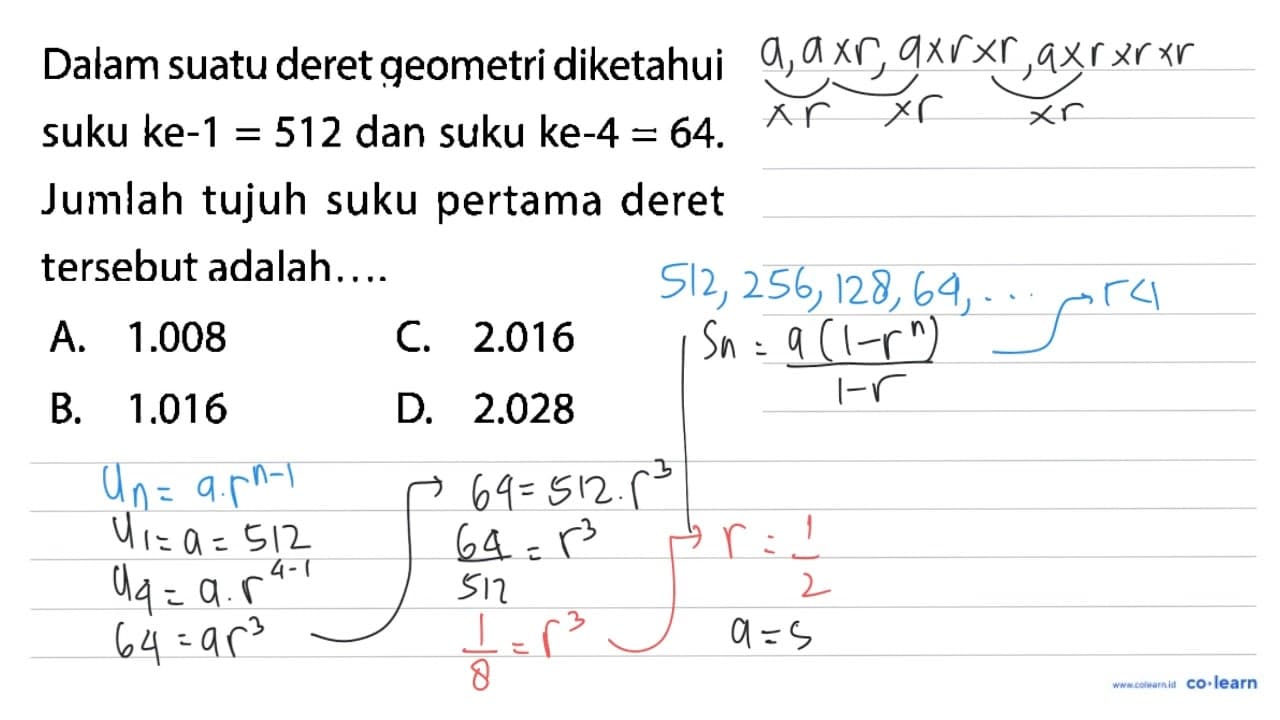 Dalam suatu deret geometri diketahui
suku ke-1 = 512 dan suku ke-4 = 64.
Jumlah tujuh suku pertama deret
tersebut adalah....
A. 1.008 C. 2.016
B. 1.016 D. 2.028
a, a×r, a×r×r, a×r×r×r
×r ×r ×r
512, 256, 128, 64, ... → r<1
Sn = a(1-r^n)
1-r
Un = a.r^n-1
U1 = a = 512
U4 = a.r^4-1
64 = ar^3
64 = 512.r^3
64 = r^3
512
1 = r^3
8
r = 1
2
a = 5
www.colearn.id co·learn